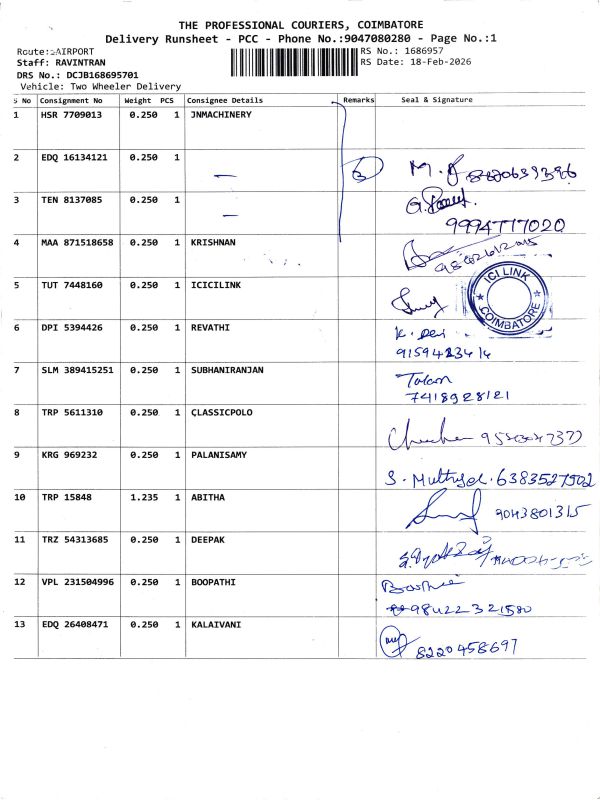 THE PROFESSIONAL COURIERS, COIMBATORE
Delivery Runsheet - PCC - Phone No.:9047080280 - Page No.:1
Route: AIRPORT
RS No.: 1686957
Staff: RAVINTRAN
RS Date: 18-Feb-2026
DRS No.: DCJB168695701
Vehicle: Two Wheeler Delivery
S No Consignment No Weight PCS Consignee Details Remarks Seal & Signature
1 HSR 7709013 0.250 1 JNMACHINERY
2 EDQ 16134121 0.250 1
3 TEN 8137085 0.250 1
9994777020
4 MAA 871518658 0.250 1 KRISHNAN
5 TUT 7448160 0.250 1 ICICILINK
ICI LINK
COIMBATORE
6 DPI 5394426 0.250 1 REVATHI
K. Devi
7 SLM 389415251 0.250 1 SUBHANIRANJAN
7418928121
8 TRP 5611310 0.250 1 CLASSICPOLO
9 KRG 969232 0.250 1 PALANISAMY
6383527502
10 TRP 15848 1.235 1 ABITHA
9043801315
11 TRZ 54313685 0.250 1 DEEPAK
12 VPL 231504996 0.250 1 BOOPATHI
13 EDQ 26408471 0.250 1 KALAIVANI
8220458697